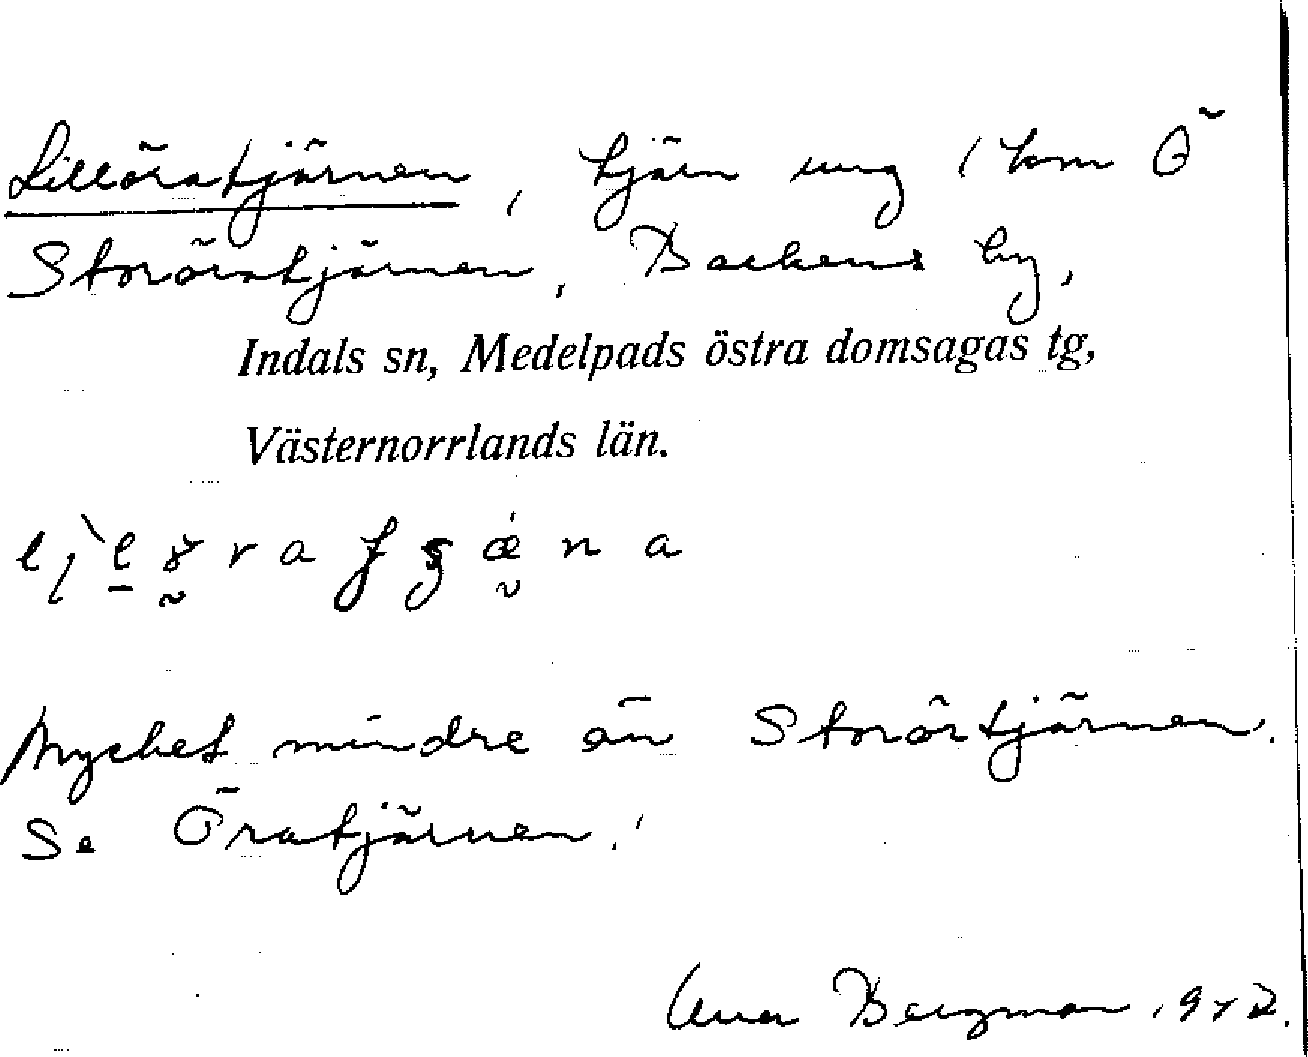 Lillöratjärnen, tjärn ung 1 km Ö
Storöratjärnen, Backens by,
Indals sn, Medelpads östra domsagas tg,
Västernorrlands län.
Mycket mindre än Storörtjärnen.
Se Öratjärnen!
Bergman